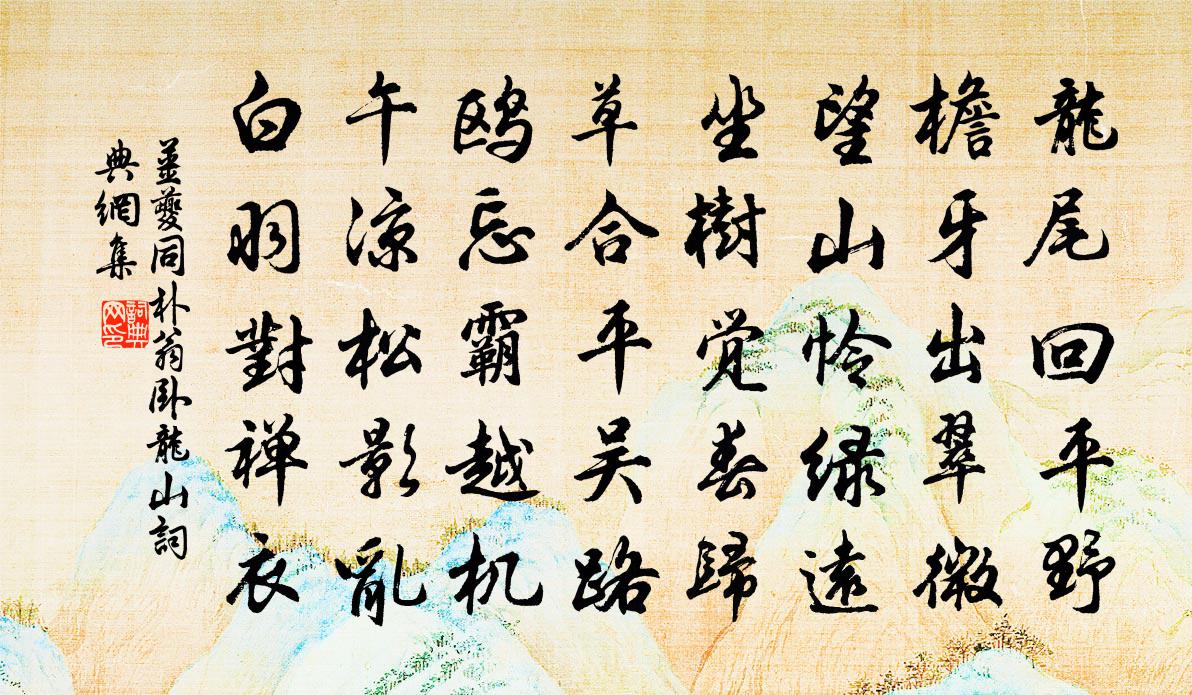 龍尾回平野
檐牙出翠微
望山怜绿遠
坐樹觉春歸
草合平吴路
鸥忘霸越机
午凉松影亂
白羽對禅衣
薑夔同朴翁卧龍山詞
典網集
詞典
网印